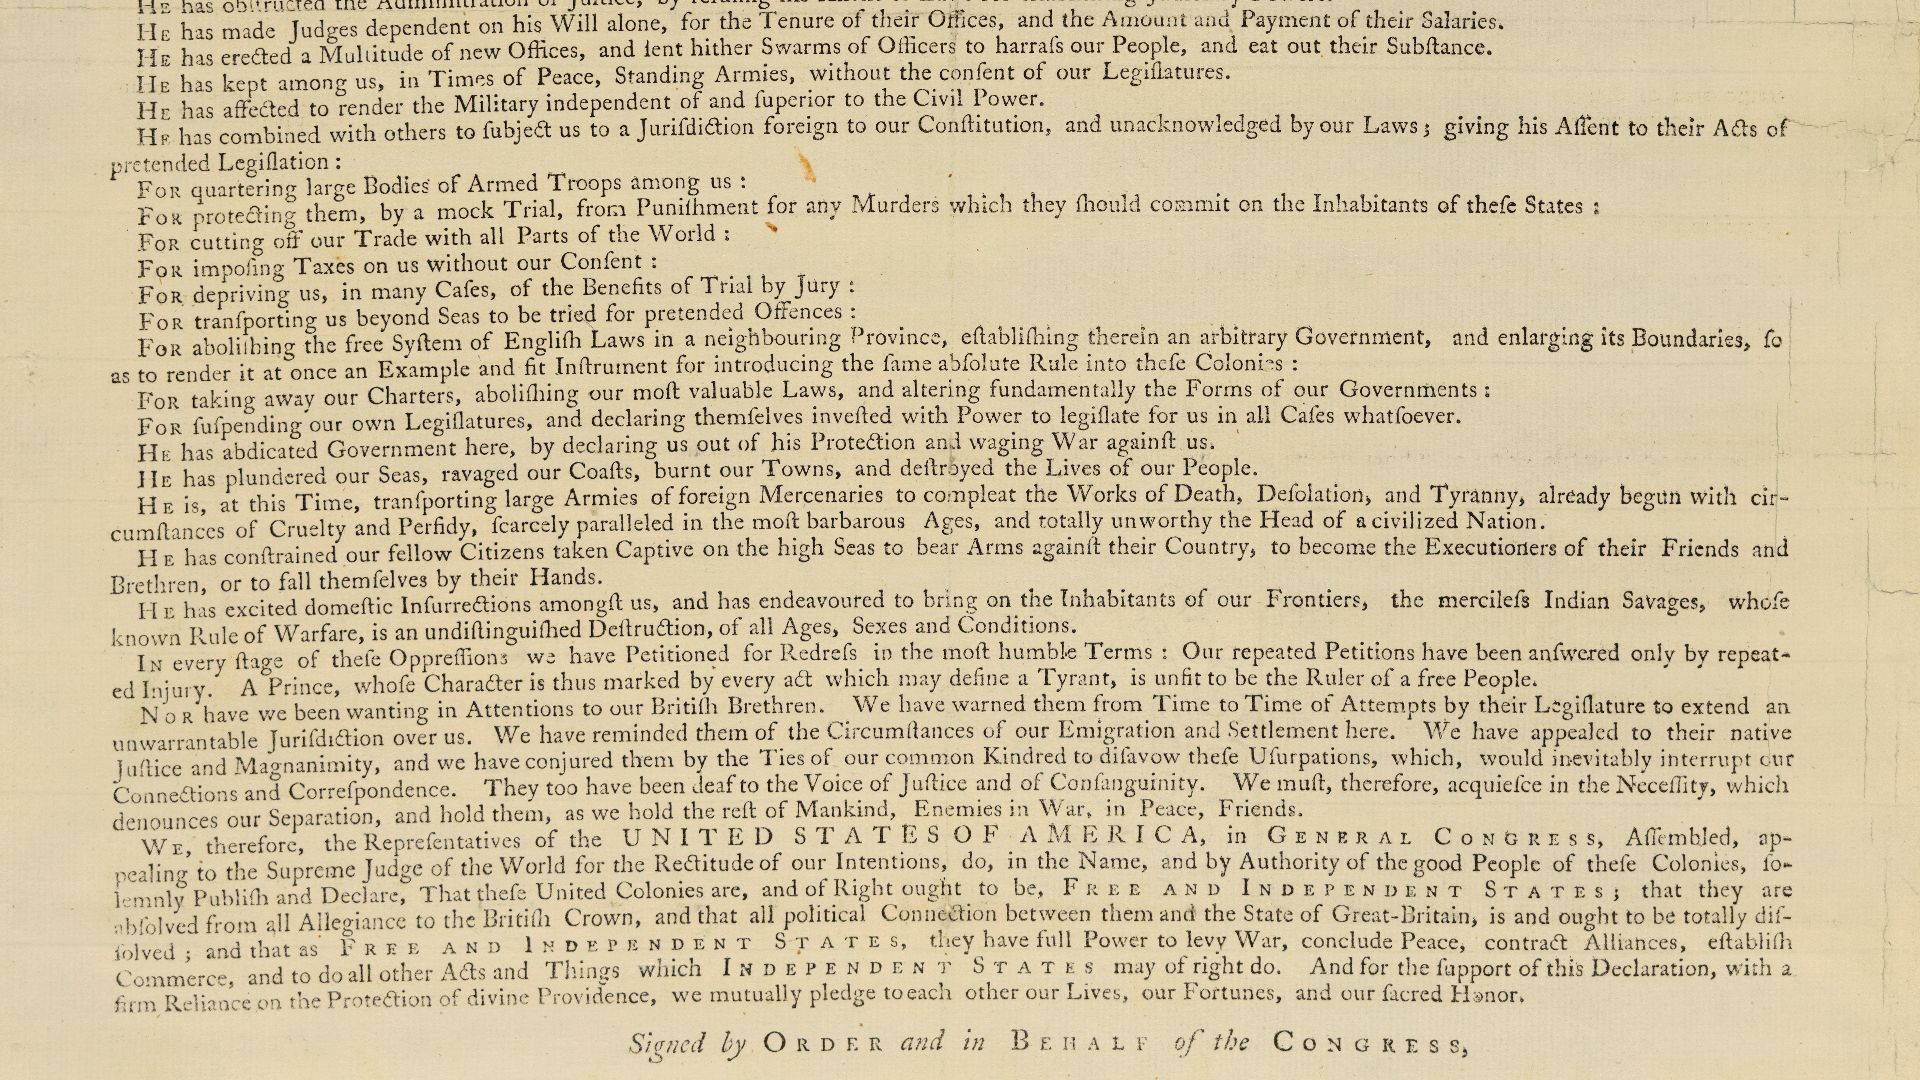 HE has obſtructed the Adminiſtration of Juſtice, by refuſing his Aſſent to Laws for eſtabliſhing Judiciary Powers.
HE has made Judges dependent on his Will alone, for the Tenure of their Offices, and the Amount and Payment of their Salaries.
HE has erected a Multitude of new Offices, and ſent hither Swarms of Officers to harraſs our People, and eat out their Subſtance.
HE has kept among us, in Times of Peace, Standing Armies, without the conſent of our Legiſlatures.
HE has affected to render the Military independent of and ſuperior to the Civil Power.
HE has combined with others to ſubject us to a Juriſdiction foreign to our Conſtitution, and unacknowledged by our Laws; giving his Aſſent to their Acts of
pretended Legiſlation:
FOR quartering large Bodies of Armed Troops among us:
FOR protecting them, by a mock Trial, from Puniſhment for any Murders which they ſhould commit on the Inhabitants of theſe States:
FOR cutting off our Trade with all Parts of the World:
FOR impoſing Taxes on us without our Conſent:
FOR depriving us, in many Caſes, of the Benefits of Trial by Jury:
FOR tranſporting us beyond Seas to be tried for pretended Offences:
FOR aboliſhing the free Syſtem of Engliſh Laws in a neighbouring Province, eſtabliſhing therein an arbitrary Government, and enlarging its Boundaries, ſo
as to render it at once an Example and fit Inſtrument for introducing the ſame abſolute Rule into theſe Colonies:
FOR taking away our Charters, aboliſhing our moſt valuable Laws, and altering fundamentally the Forms of our Governments:
FOR ſuſpending our own Legiſlatures, and declaring themſelves inveſted with Power to legiſlate for us in all Caſes whatſoever.
HE has abdicated Government here, by declaring us out of his Protection and waging War againſt us.
HE has plundered our Seas, ravaged our Coaſts, burnt our Towns, and deſtroyed the Lives of our People.
HE is, at this Time, tranſporting large Armies of foreign Mercenaries to compleat the Works of Death, Deſolation, and Tyranny, already begun with cir-
cumſtances of Cruelty and Perfidy, ſcarcely paralleled in the moſt barbarous Ages, and totally unworthy the Head of a civilized Nation.
HE has conſtrained our fellow Citizens taken Captive on the high Seas to bear Arms againſt their Country, to become the Executioners of their Friends and
Brethren, or to fall themſelves by their Hands.
HE has excited domeſtic Inſurrections amongſt us, and has endeavoured to bring on the Inhabitants of our Frontiers, the mercileſs Indian Savages, whoſe
known Rule of Warfare, is an undiſtinguiſhed Deſtruction, of all Ages, Sexes and Conditions.
IN every ſtage of theſe Oppreſſions we have Petitioned for Redreſs in the moſt humble Terms: Our repeated Petitions have been anſwered only by repeat-
ed Injury. A Prince, whoſe Character is thus marked by every act which may define a Tyrant, is unfit to be the Ruler of a free People.
NOR have we been wanting in Attentions to our Britiſh Brethren. We have warned them from Time to Time of Attempts by their Legiſlature to extend an
unwarrantable Juriſdiction over us. We have reminded them of the Circumſtances of our Emigration and Settlement here. We have appealed to their native
Juſtice and Magnanimity, and we have conjured them by the Ties of our common Kindred to diſavow theſe Uſurpations, which, would inevitably interrupt our
Connections and Correſpondence. They too have been deaf to the Voice of Juſtice and of Conſanguinity. We muſt, therefore, acquieſce in the Neceſſity, which
denounces our Separation, and hold them, as we hold the reſt of Mankind, Enemies in War, in Peace, Friends.
WE, therefore, the Repreſentatives of the UNITED STATES OF AMERICA, in GENERAL CONGRESS, Aſſembled, ap-
pealing to the Supreme Judge of the World for the Rectitude of our Intentions, do, in the Name, and by Authority of the good People of theſe Colonies, ſo-
lemnly Publiſh and Declare, That theſe United Colonies are, and of Right ought to be, FREE AND INDEPENDENT STATES; that they are
abſolved from all Allegiance to the Britiſh Crown, and that all political Connection between them and the State of Great-Britain, is and ought to be totally diſ-
ſolved; and that as FREE AND INDEPENDENT STATES, they have full Power to levy War, conclude Peace, contract Alliances, eſtabliſh
Commerce, and to do all other Acts and Things which INDEPENDENT STATES may of right do. And for the ſupport of this Declaration, with a
firm Reliance on the Protection of divine Providence, we mutually pledge to each other our Lives, our Fortunes, and our ſacred Honor.
Signed by ORDER and in BEHALF of the CONGRESS,